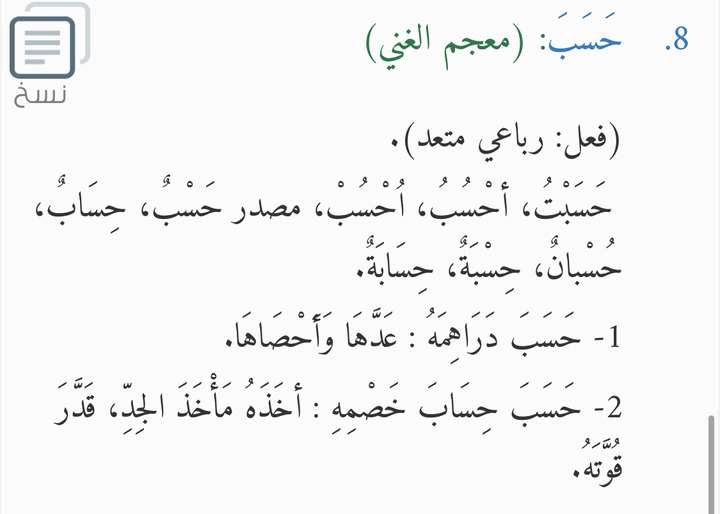 8. حَسَبَ: (معجم الغني)
نسخ
(فعل: رباعي متعد).
حَسَبْتُ، أحْسُبُ، اُحْسُبْ، مصدر حَسْبٌ، حِسَابٌ،
حُسْبانٌ، حِسْبَةٌ، حِسَابَةٌ.
1- حَسَبَ دَرَاهِمَهُ : عَدَّهَا وَأَحْصَاهَا.
2- حَسَبَ حِسَابَ خَصْمِهِ : أخَذَهُ مَأْخَذَ الجِدِّ، قَدَّرَ
قُوَّتَهُ.